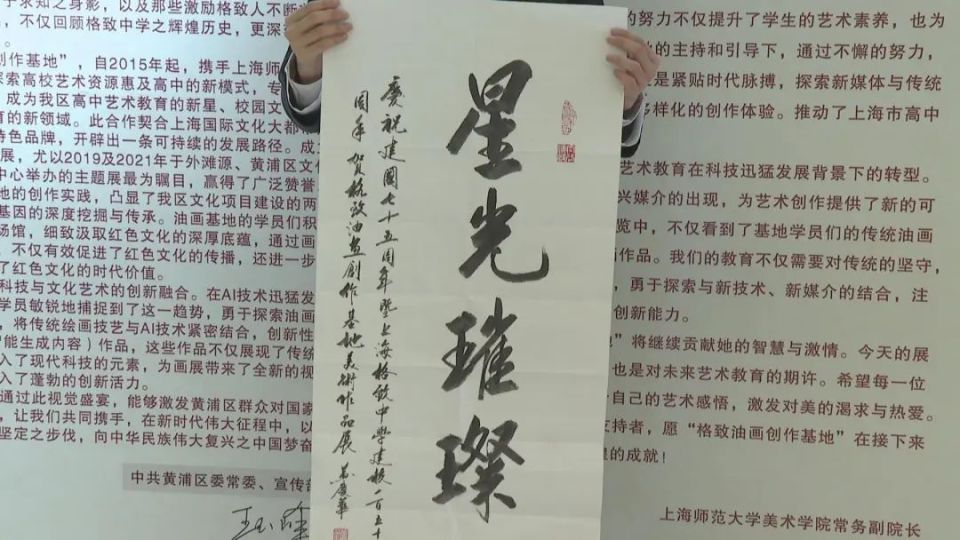 于求知之身影,以及那些激励格致人不断
,不仅回顾格致中学之辉煌历史,更深
创作基地",自2015年起,携手上海师
探索高校艺术资源惠及高中的新模式,专
成为我区高中艺术教育的新星、校园文
育的新领域。此合作契合上海国际文化大都
特色品牌,开辟出一条可持续的发展路径。成
展,尤以2019及2021年于外滩源、黄浦区文
中心举办的主题展最为瞩目,赢得了广泛赞誉
地的创作实践,凸显了我区文化项目建设的两
基因的深度挖掘与传承。油画基地的学员们积
场馆,细致汲取红色文化的深厚底蕴,通过画
。不仅有效促进了红色文化的传播,还进一步
了红色文化的时代价值。
科技与文化艺术的创新融合。在AI技术迅猛发
学员敏锐地捕捉到了这一趋势,勇于探索油画
,将传统绘画技艺与AI技术紧密结合,创新性
智能生成内容)作品,这些作品不仅展现了传统
入了现代科技的元素,为画展带来了全新的视
入了蓬勃的创新活力。
通过此视觉盛宴,能够激发黄浦区群众对国家
,让我们共同携手,在新时代伟大征程中,以
坚定之步伐,向中华民族伟大复兴之中国梦奋
中共黄浦区委常委、宣传部
星光璀璨
慶祝建國七十五周年暨上海格致中學建校一百五十
周年 賀格致油画創作基地美術作品展
的努力不仅提升了学生的艺术素养,也为
的主持和引导下,通过不懈的努力,
是紧贴时代脉搏,探索新媒体与传统
多样化的创作体验。推动了上海市高中
艺术教育在科技迅猛发展背景下的转型。
兴媒介的出现,为艺术创作提供了新的可
览中,不仅看到了基地学员们的传统油画
作品。我们的教育不仅需要对传统的坚守,
,勇于探索与新技术、新媒介的结合,注
创新能力。
"将继续贡献她的智慧与激情。今天的展
也是对未来艺术教育的期许。希望每一位
自己的艺术感悟,激发对美的渴求与热爱。
支持者,愿"格致油画创作基地"在接下来
的成就!
上海师范大学美术学院常务副院长